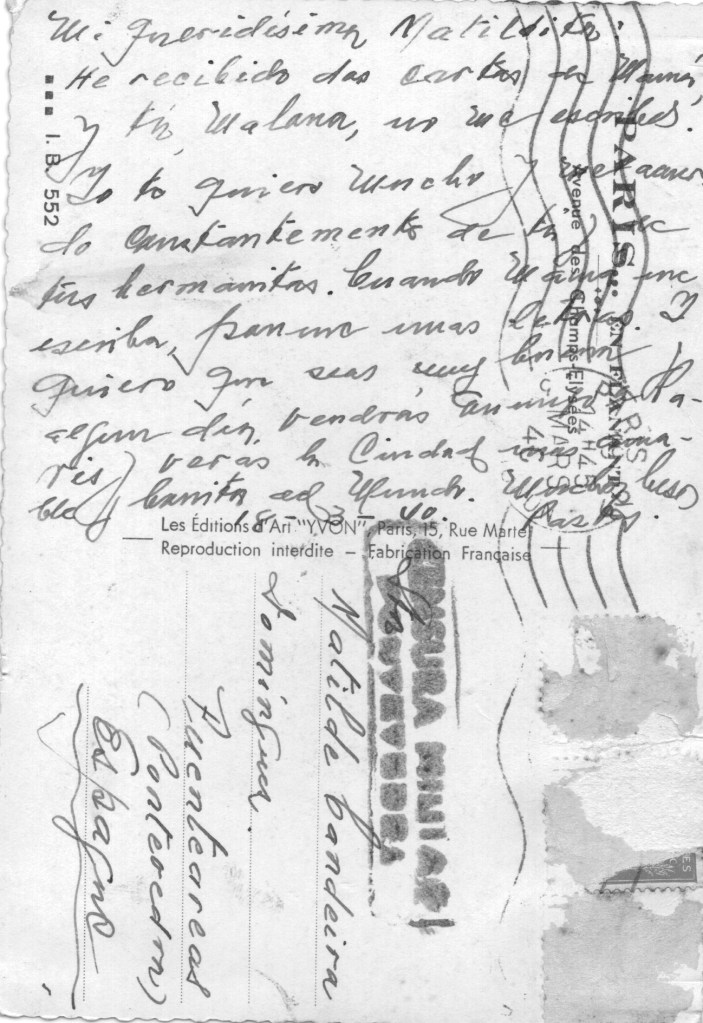 Mi queridísima Matildita:
He recibido dos cartas de Mamá
y tú, Malana, no me escribes.
Yo te quiero mucho y me acuer-
do constantemente de ti y de
tus hermanitos. Cuando Mamá me
escriba, ponme unas letras. Y
quiero que seas muy buena y
algun dia vendrás conmigo Pa-
ris y verás la Ciudad mas
bonita del Mundo. Muchos besos
18-3-40.
I. B. 552
PARIS... EN FLANANT
Avenue des Champs-Elysées
PARIS
14H45
MARS
40
Les Éditions d'Art "YVON", Paris, 15, Rue Martel
Reproduction interdite – Fabrication Française
CENSURA MILITAR
PONTEVEDRA
Matilde Candeira
Dominguez.
Puenteareas
(Pontevedra)
España
ES